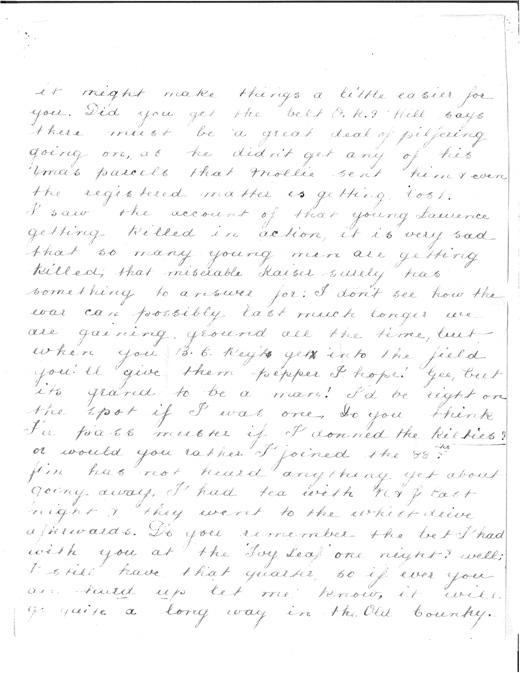 it might make things a little easier for
you. Did you get the belt O.K.? Will says
there must be a great deal of pilfering
going on, as he didn't get any of his
Xmas parcels that Mollie sent him & even
the registered matter is getting lost.
I saw the account of that young Lawrence
getting killed in action, it is very sad
that so many young men are getting
killed, that miserable Kaiser surely has
something to answer for: I don't see how the
war can possibly last much longer we
are gaining ground all the time, but
when you B.C. Reg'ts get into the field
you'll give them pepper I hope! Gee, but
its grand to be a man! I'd be right on
the spot if I was one, Do you think
I'd pass muster if I donned the kilties?
or would you rather I joined the 88th?
Jim has not heard anything yet about
going away. I had tea with & J last
night & they went to the whist drive
afterwards. Do you remember the bet I had
with you at the "Ivy Leaf" one night? well;
I still have that quarter, so if ever you
are hard up let me know, it will
go quite a long way in the Old Country.